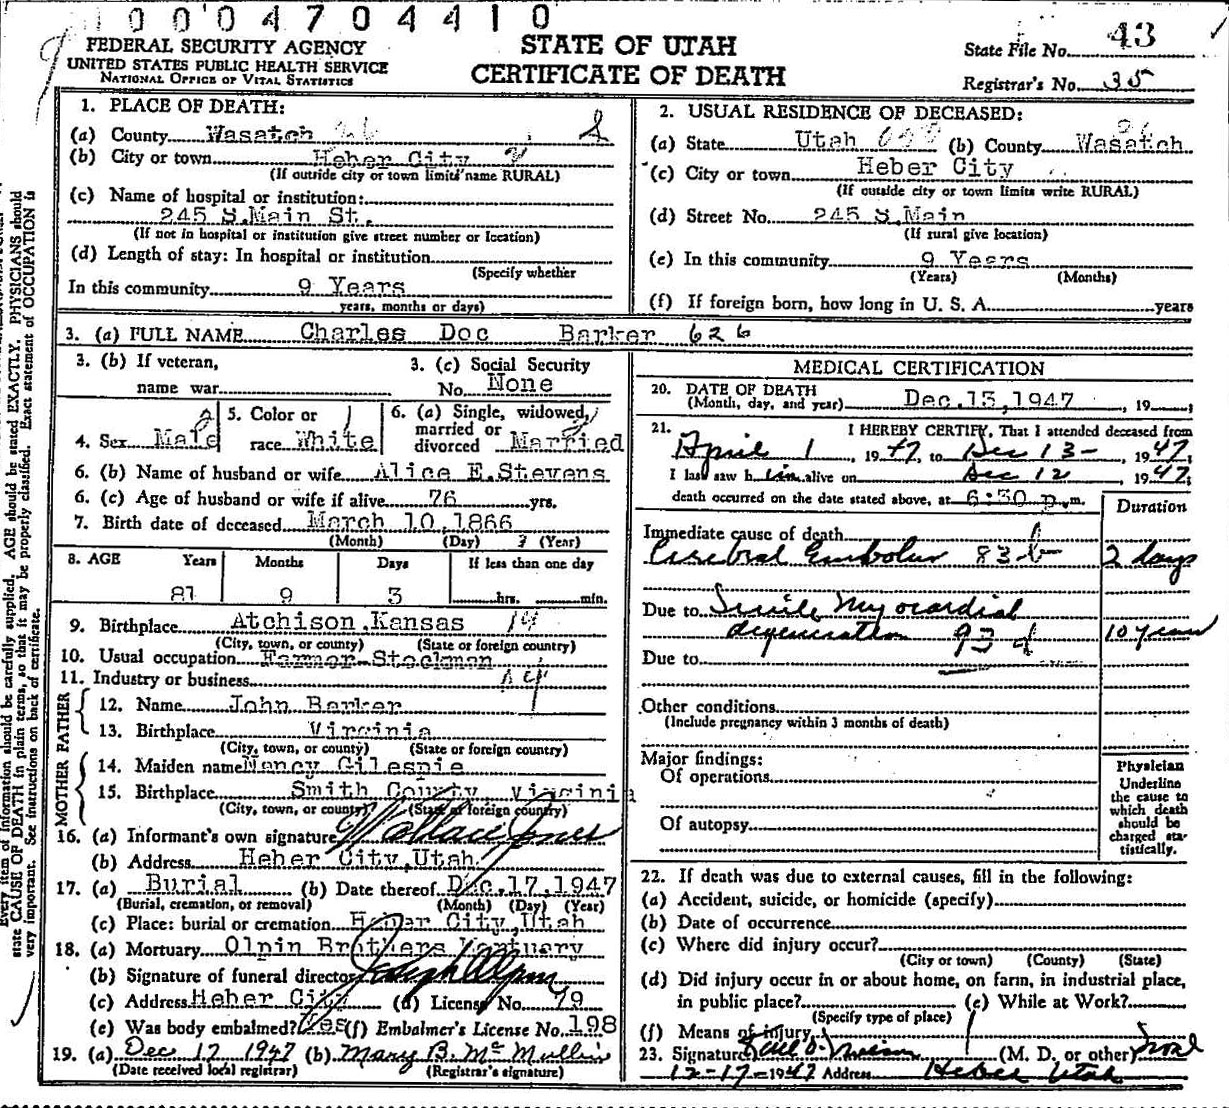 1 0 0 0 4 7 0 4 4 1 0
FEDERAL SECURITY AGENCY
UNITED STATES PUBLIC HEALTH SERVICE
NATIONAL OFFICE OF VITAL STATISTICS
STATE OF UTAH
CERTIFICATE OF DEATH
State File No. 43
Registrar's No. 35
1. PLACE OF DEATH:
(a) County Wasatch 26
(b) City or town Heber City
(If outside city or town limits name RURAL)
(c) Name of hospital or institution:
245 S.Main St.
(If not in hospital or institution give street number or location)
(d) Length of stay: In hospital or institution
(Specify whether
In this community 9 Years
years, months or days)
2. USUAL RESIDENCE OF DECEASED:
(a) State Utah (b) County Wasatch 26
(c) City or town Heber City
(If outside city or town limits write RURAL)
(d) Street No. 245 S.Main
(If rural give location)
(e) In this community 9 Years
(Years) (Months)
(f) If foreign born, how long in U. S. A. years
3. (a) FULL NAME Charles Doc Barker 626
3. (b) If veteran,
name war
3. (c) Social Security
No. None
4. Sex Male
5. Color or
race White 1
6. (a) Single, widowed,
married or
divorced Married
6. (b) Name of husband or wife Alice E.Stevens
6. (c) Age of husband or wife if alive 76 yrs.
7. Birth date of deceased March 10,1866
(Month) (Day) (Year)
8. AGE Years Months Days If less than one day
81 9 3 hrs. min.
9. Birthplace Atchison,Kansas 14
(City, town, or county) (State or foreign country)
10. Usual occupation Farmer-Stockman
11. Industry or business
FATHER
12. Name John Barker
13. Birthplace Virginia
(City, town, or county) (State or foreign country)
MOTHER
14. Maiden name Nancy Gilespie
15. Birthplace Smith County, Virginia
(City, town, or county) (State or foreign country)
16. (a) Informant's own signature Wallace Jones
(b) Address Heber City,Utah
17. (a) Burial (b) Date thereof Dec.17,1947
(Burial, cremation, or removal) (Month) (Day) (Year)
(c) Place: burial or cremation Heber City,Utah
18. (a) Mortuary Olpin Brothers Mortuary
(b) Signature of funeral director
(c) Address Heber City (d) License No. 79
(e) Was body embalmed? Yes (f) Embalmer's License No. 198
19. (a) Dec 17 1947 (b) Mary B. McMullin
(Date received local registrar) (Registrar's signature)
MEDICAL CERTIFICATION
20. DATE OF DEATH
(Month, day, and year) Dec.13,1947, 19
21. I HEREBY CERTIFY, That I attended deceased from
April 1, 1947, to Dec 13-, 1947;
I last saw him alive on Dec 12, 1947;
death occurred on the date stated above, at 6:30 p.m.
Duration
Immediate cause of death
Cerebral Embolus 83 b 2 days
Due to Senile Myocardial
degeneration 93 d 10 years
Due to
Other conditions
(Include pregnancy within 3 months of death)
Major findings:
Of operations
Of autopsy
Physician
Underline
the cause to
which death
should be
charged sta-
tistically.
22. If death was due to external causes, fill in the following:
(a) Accident, suicide, or homicide (specify)
(b) Date of occurrence
(c) Where did injury occur?
(City or town) (County) (State)
(d) Did injury occur in or about home, on farm, in industrial place,
in public place? (e) While at Work?
(Specify type of place)
(f) Means of injury
23. Signature (M. D. or other)
12-17-1947 Address Heber Utah
Every item of information should be carefully supplied. AGE should be stated EXACTLY. PHYSICIANS should
state CAUSE OF DEATH in plain terms, so that it may be properly classified. Exact statement of OCCUPATION is
very important. See instructions on back of certificate.